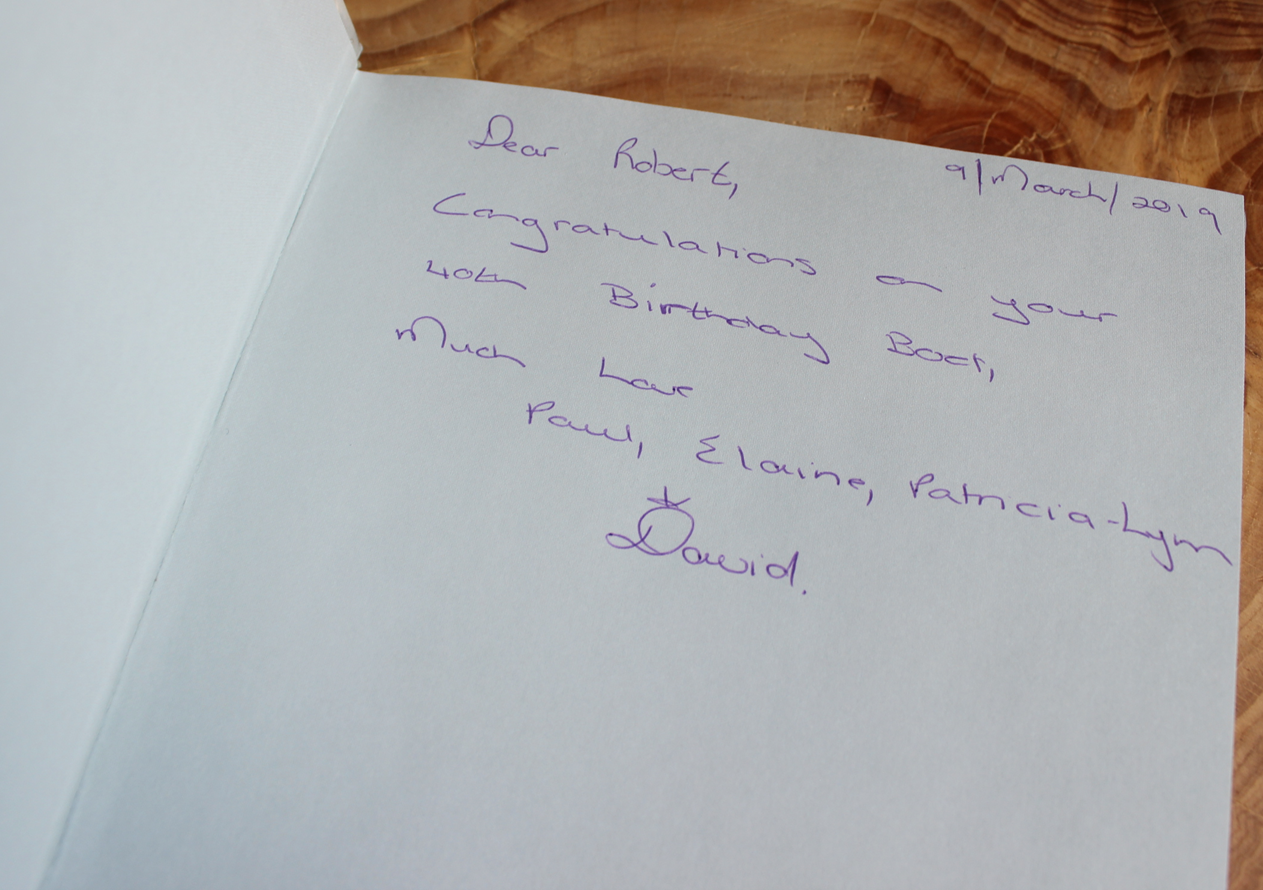 9/March/2019
Dear Robert,
Congratulations on your
40th Birthday Boet,
Much Love
Paul, Elaine, Patricia-Lynn
& David.